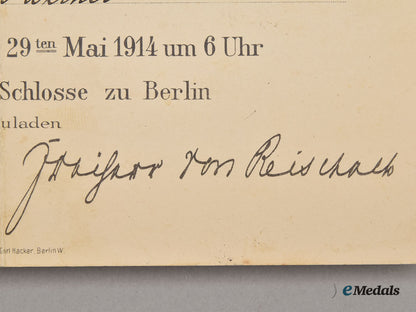 29ten Mai 1914 um 6 Uhr
Schlosse zu Berlin
uladen
Freiherr von Reischach
Hacker. Berlin W.
eMedals